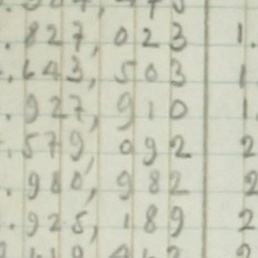 .827,023 1.
.643,503 1
.927,910 1.
.579,092 2
.980,982 2
.925,189 2